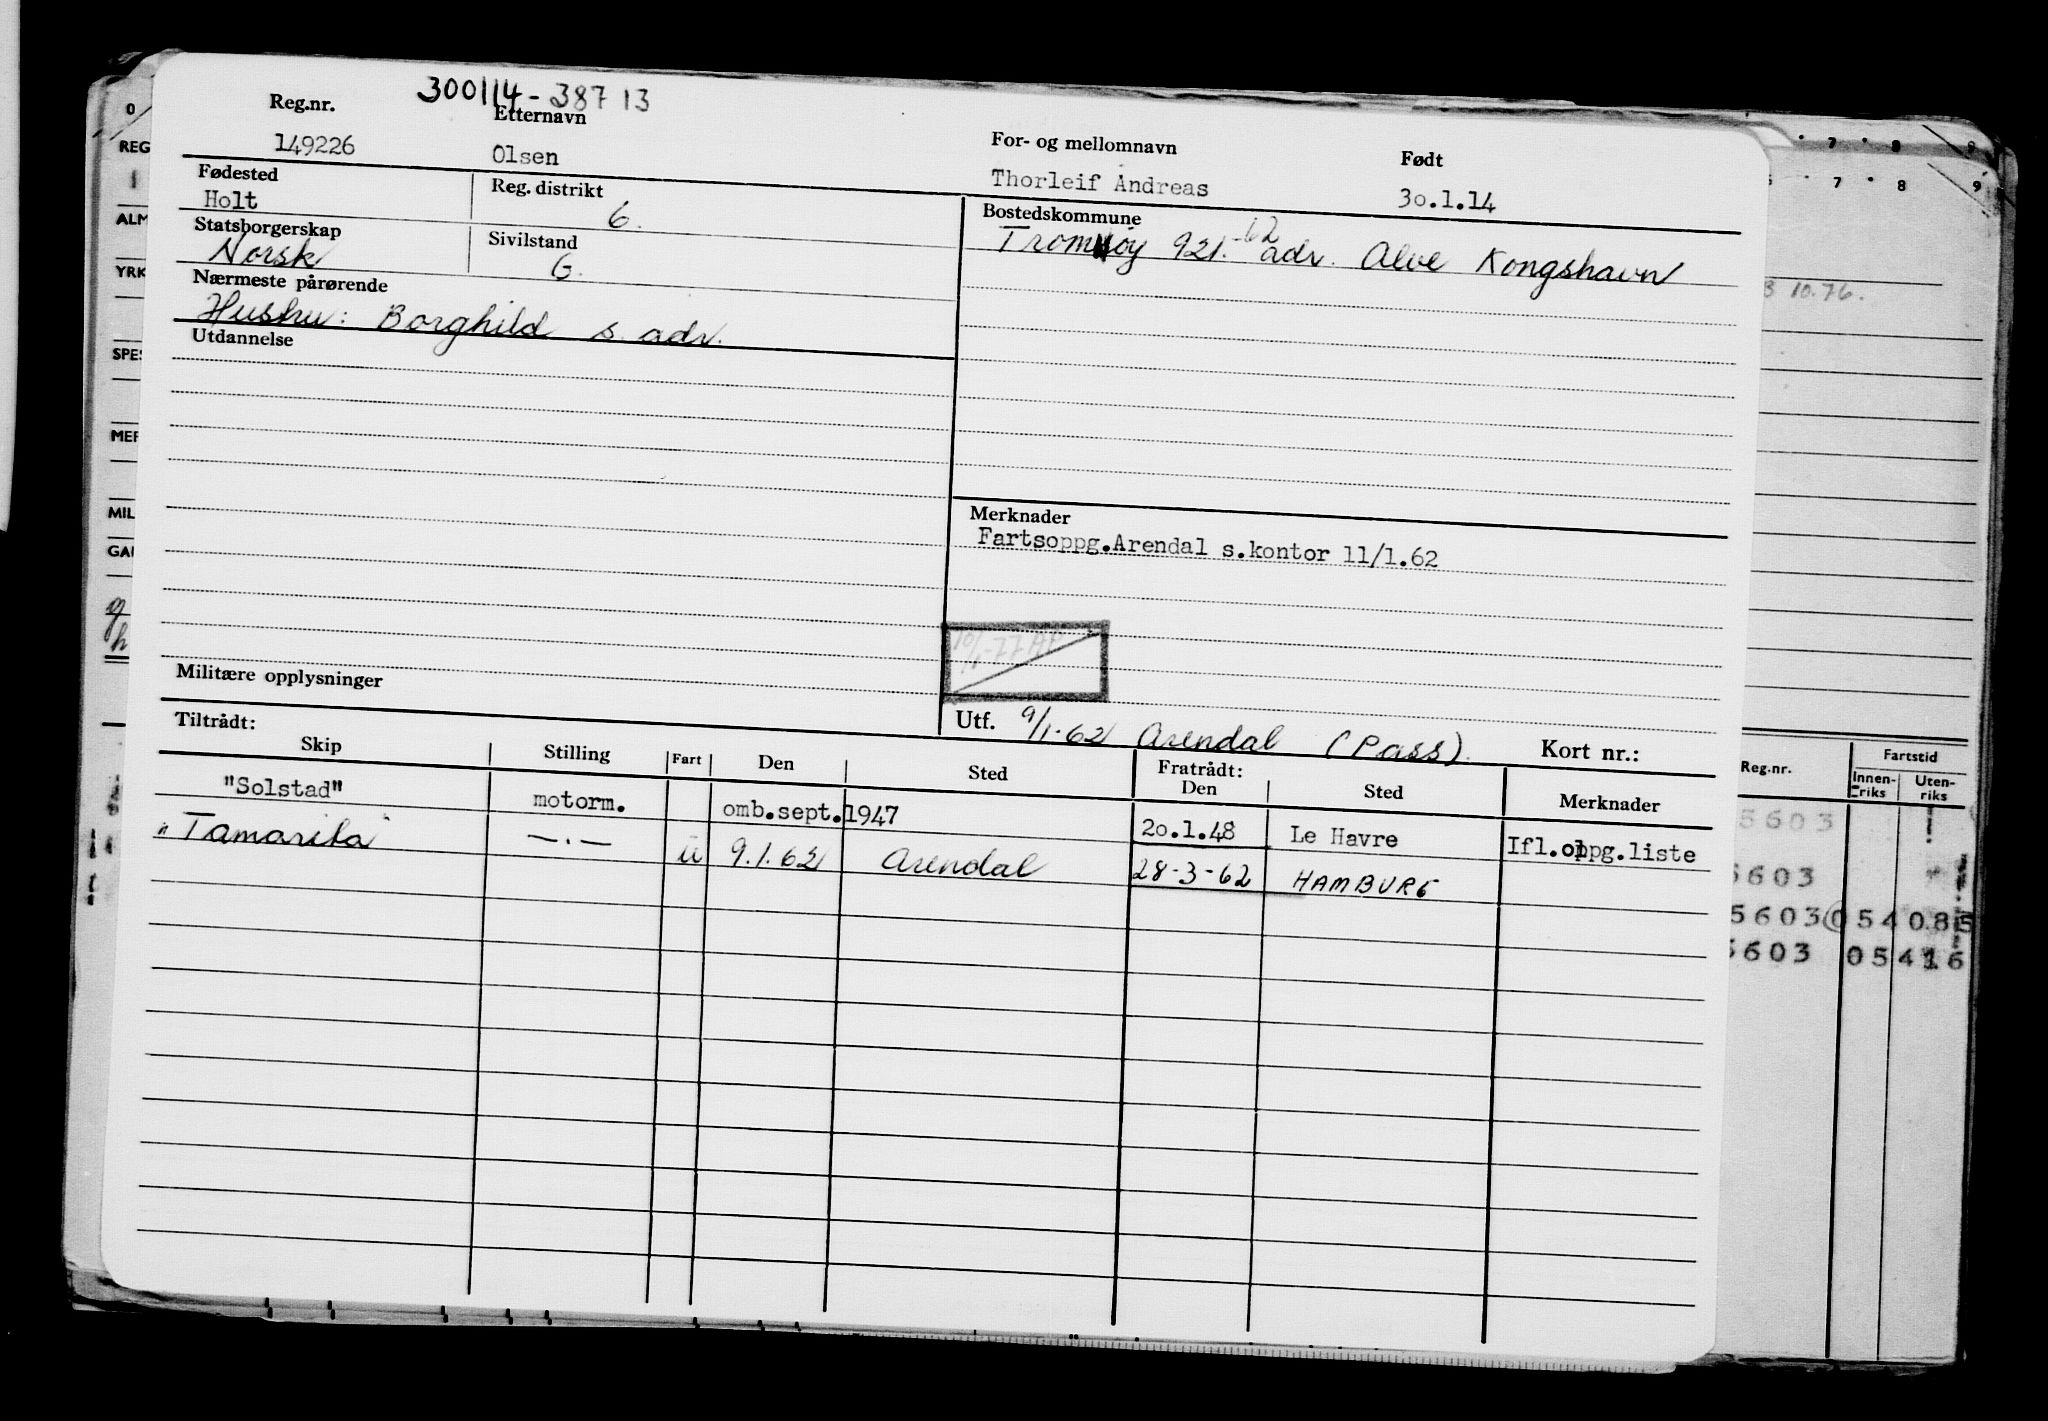 300114 - 387 13
Reg.nr. Etternavn For- og mellomnavn Født
149226 Olsen Thorleif Andreas 30.1.14
Fødested Reg. distrikt Bostedskommune
Holt 6. Tromøy 921. -62 adr. Alve Kongshavn
Statsborgerskap Sivilstand
Norsk G.
Nærmeste pårørende
Hushu: Borghild s. adr.
Utdannelse
Merknader
Fartsoppg.Arendal s.kontor 11/1.62
10/1-77 AP
Militære opplysninger
Utf. 9/1-62 Arendal (Pass) Kort nr.:
Tiltrådt: Fratrådt:
Skip Stilling Fart Den Sted Den Sted Merknader
"Solstad" motorm. omb.sept.1947 20.1.48 Le Havre Ifl.oppg.liste
"Tamarita" —.— u 9.1.62 Arendal 28-3-62 HAMBURG
0
REG
ALM
YRK
SPES
MER
MIL
GAI
7 8 9
7 8 9
3 10.76.
Reg.nr. Fartstid
Innen-riks Uten-riks
5603
5603
5603 054 085
5603 054 16